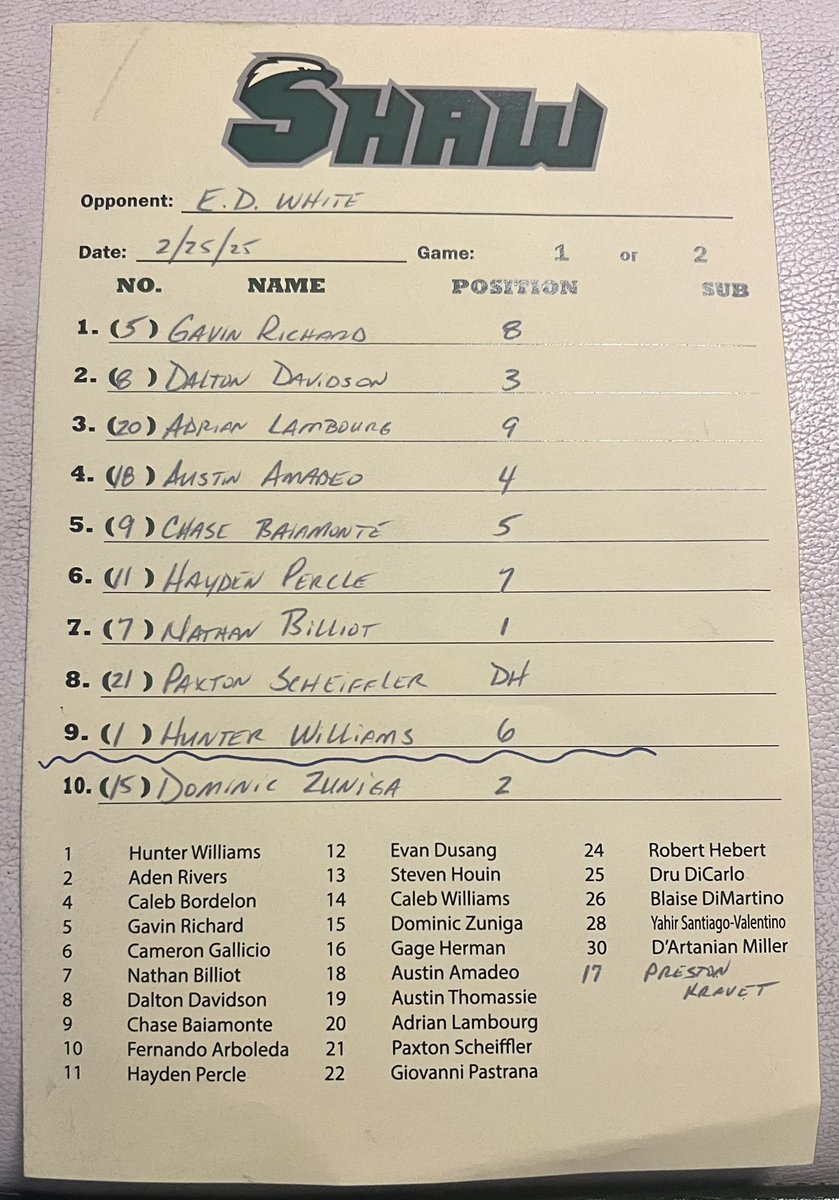 SHAW
Opponent: E.D. WHITE
Date: 2/25/25 Game: 1 or 2
NO. NAME POSITION SUB
1. (5) GAVIN RICHARD 8
2. (8) DALTON DAVIDSON 3
3. (20) ADRIAN LAMBOURG 9
4. (18) AUSTIN AMADEO 4
5. (9) CHASE BAIAMONTE 5
6. (11) HAYDEN PERCLE 7
7. (7) NATHAN BILLIOT 1
8. (21) PAXTON SCHEIFFLER DH
9. (1) HUNTER WILLIAMS 6
10. (15) DOMINIC ZUNIGA 2
1 Hunter Williams 12 Evan Dusang 24 Robert Hebert
2 Aden Rivers 13 Steven Houin 25 Dru DiCarlo
4 Caleb Bordelon 14 Caleb Williams 26 Blaise DiMartino
5 Gavin Richard 15 Dominic Zuniga 28 Yahir Santiago-Valentino
6 Cameron Gallicio 16 Gage Herman 30 D'Artanian Miller
7 Nathan Billiot 18 Austin Amadeo 17 PRESTON
8 Dalton Davidson 19 Austin Thomassie KRAVET
9 Chase Baiamonte 20 Adrian Lambourg
10 Fernando Arboleda 21 Paxton Scheiffler
11 Hayden Percle 22 Giovanni Pastrana